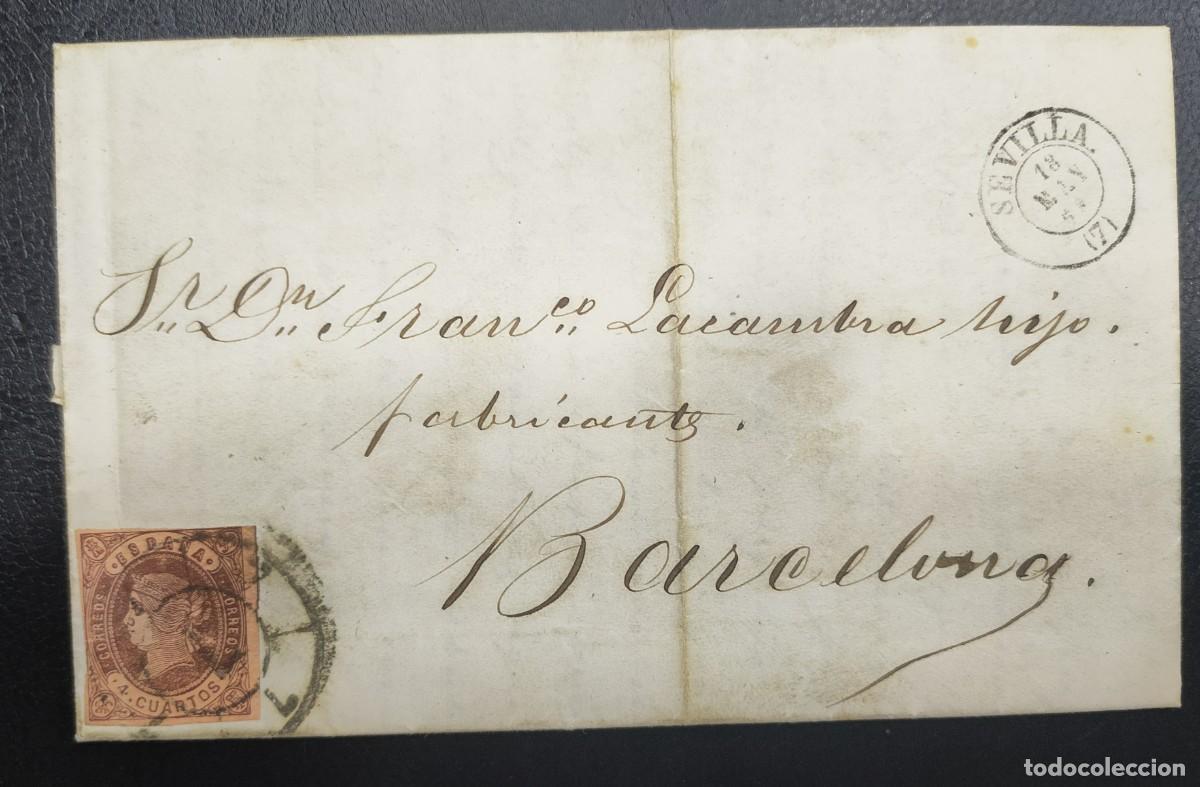 SEVILLA.
18
(7)
Sr. Dn. Franco. Lacambra hijo.
fabricante.
Barcelona.
ESPAÑA
CORREOS
CORREOS
4 CUARTOS
todocoleccion